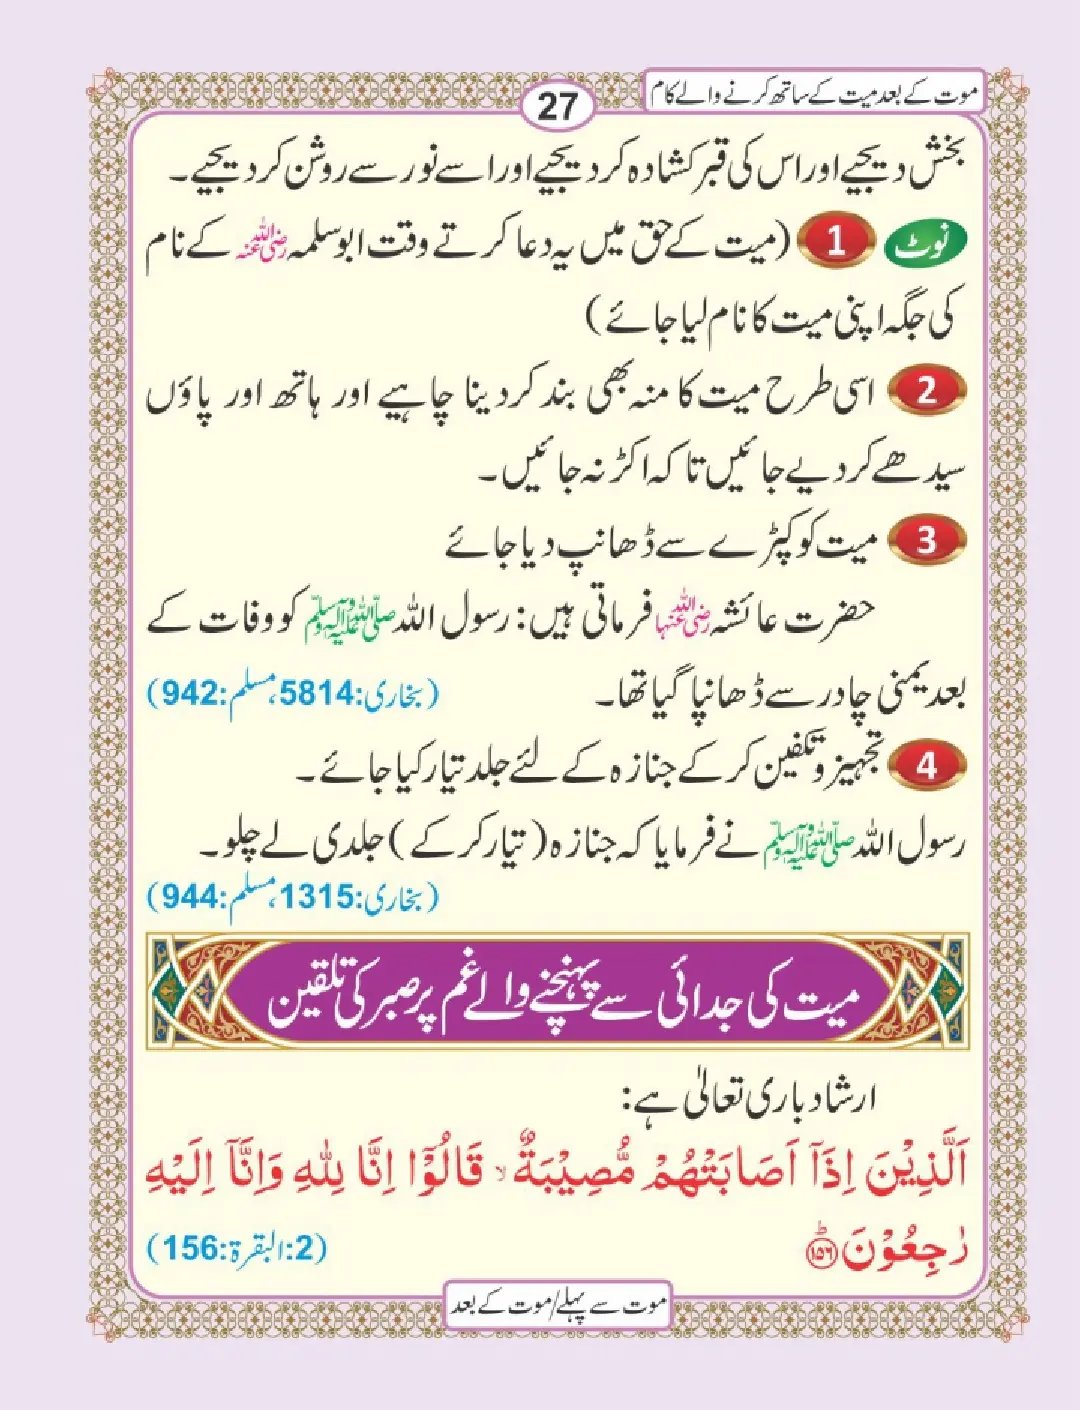 موت کے بعد میت کے ساتھ کرنے والے کام
27
بخش دیجیے اور اس کی قبر کشادہ کر دیجیے اور اسے نور سے روشن کر دیجیے۔
نوٹ 1 (میت کے حق میں یہ دعا کرتے وقت ابوسلمہ رضی اللہ عنہ کے نام
کی جگہ اپنی میت کا نام لیا جائے)
2 اسی طرح میت کا منہ بھی بند کر دینا چاہیے اور ہاتھ اور پاؤں
سیدھے کر دیے جائیں تاکہ اکڑ نہ جائیں۔
3 میت کو کپڑے سے ڈھانپ دیا جائے
حضرت عائشہ رضی اللہ عنہا فرماتی ہیں: رسول اللہ صلی اللہ علیہ وآلہ وسلم کو وفات کے
بعد یمنی چادر سے ڈھانپا گیا تھا۔ (بخاری:5814، مسلم:942)
4 تجہیز و تکفین کر کے جنازہ کے لئے جلد تیار کیا جائے۔
رسول اللہ صلی اللہ علیہ وآلہ وسلم نے فرمایا کہ جنازہ (تیار کر کے) جلدی لے چلو۔
(بخاری:1315، مسلم:944)
میت کی جدائی سے پہنچنے والے غم پر صبر کی تلقین
ارشاد باری تعالیٰ ہے:
اَلَّذِیْنَ اِذَاۤ اَصَابَتْهُمْ مُّصِیْبَةٌ ۙ قَالُوْۤا اِنَّا لِلّٰهِ وَاِنَّاۤ اِلَیْهِ
رٰجِعُوْنَ ؕ۝۱۵۶ (2:البقرة:156)
موت سے پہلے/موت کے بعد